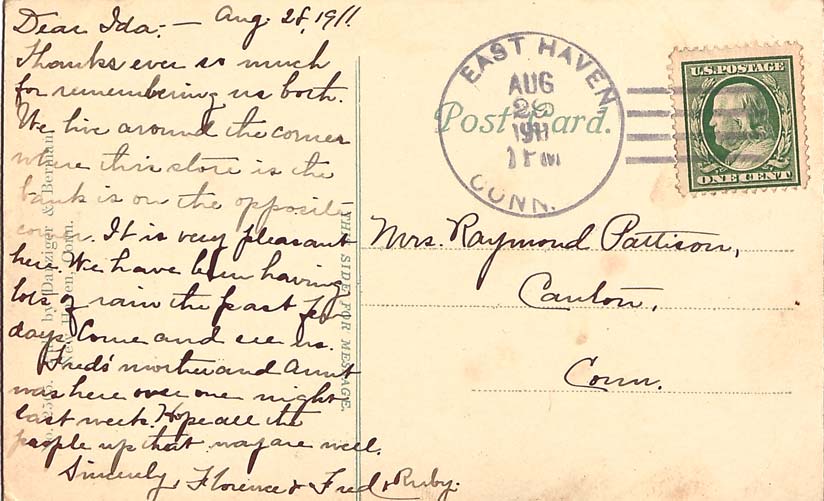 Dear Ida; - Aug. 28, 1911.
Thanks ever so much
for remembering us both.
We live around the corner
where this store is the
bank is on the opposite
corner. It is very pleasant
here. We have been having
lots of rain the past few
days. Come and see us.
Fred's mother and Aunt
was here over one night
last week. Hope all the
people up that way are well.
Sincerely, Florence & Fred & Ruby.
by Danziger & Berman
New Haven, Conn.
THIS SIDE FOR MESSAGE.
Post Card.
EAST HAVEN
AUG
1911
1 PM
CONN.
U.S. POSTAGE
ONE CENT
Mrs. Raymond Pattison,
Canton,
Conn.